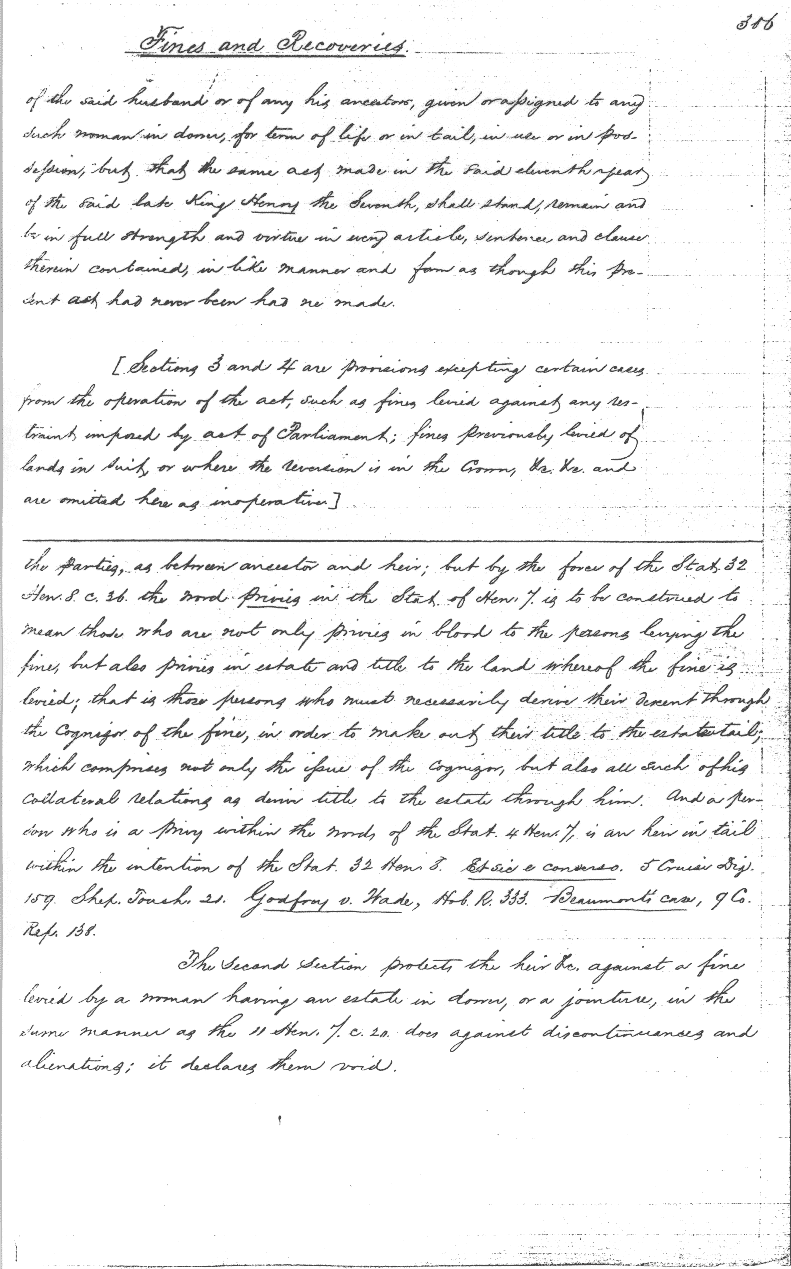 306
Fines and Recoveries.
of the said husband or of any his ancestors, given or assigned to any
such woman in dower, for term of life or in tail, in use or in pos-
session; but that the same act made in the said eleventh year
of the said late King Henry the Seventh, shall stand, remain and
be in full strength and virtue in every article, sentence and clause
therein contained, in like manner and form as though this pre-
sent act had never been had ne made.
[Sections 3 and 4 are provisions excepting certain cases
from the operation of the act, such as fines levied against any res-
traint imposed by act of Parliament; fines previously levied of
lands in suit, or where the reversion is in the Crown, &c. &c. and
are omitted here as inoperative.]
the parties, as between ancestor and heir; but by the force of the Stat. 32
Hen. 8. c. 36. the word privies in the Stat. of Hen. 7. is to be construed to
mean those who are not only privies in blood to the persons levying the
fine, but also privies in estate and title to the land whereof the fine is
levied; that is those persons who must necessarily derive their descent through
the Cognizor of the fine, in order to make out their title to the estate tail;
which comprises not only the issue of the Cognizor, but also all such of his
collateral relations as derive title to the estate through him. And a per-
son who is a privy within the words of the Stat. 4 Hen. 7, is an heir in tail
within the intention of the Stat. 32 Hen. 8. Et sic e converso. 5 Cruise Dig.
159. Shep. Touch. 21. Godfrey v. Wade, Hob. R. 333. Beaumont's case, 9 Co.
Rep. 138.
The second section protects the heir &c. against a fine
levied by a woman having an estate in dower, or a jointure, in the
same manner as the 11 Hen. 7. c. 20. does against discontinuances and
alienations; it declares them void.